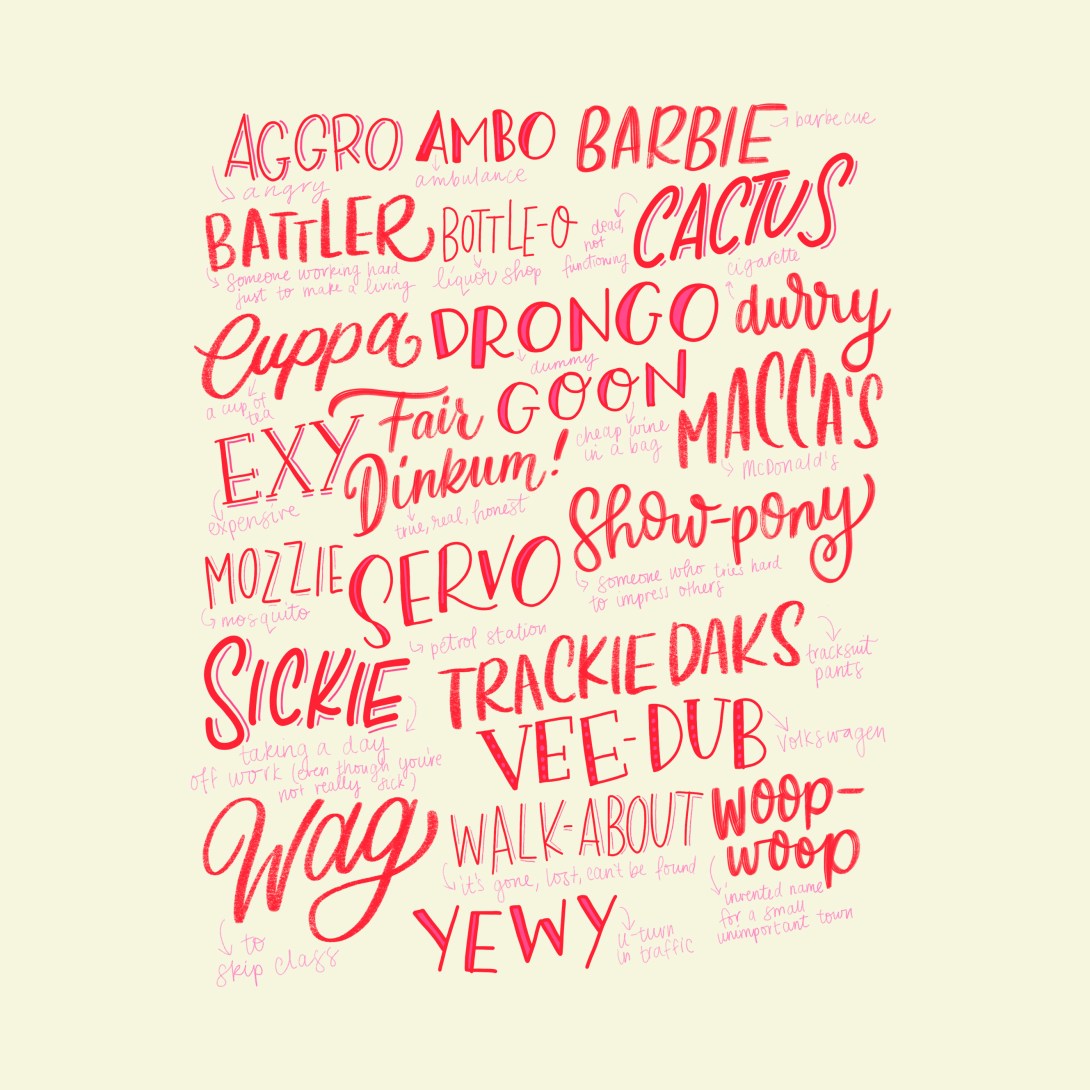 AGGRO AMBO BARBIE barbecue
angry ambulance
BATTLER BOTTLE-O dead, CACTUS
not
functioning
someone working hard liquor shop cigarette
just to make a living
Cuppa DRONGO durry
a cup of dummy
tea
Fair GOON MACCA'S
EXY Dinkum! cheap wine
in a bag McDonald's
expensive true, real, honest Show-pony
MOZZIE SERVO someone who tries hard
mosquito to impress others
petrol station
SICKIE TRACKIE DAKS tracksuit
pants
taking a day VEE-DUB Volkswagen
off work (even though you're
not really sick)
Wag WALK-ABOUT woop-
woop
it's gone, lost, can't be found
invented name
for a small
unimportant town
to YEWY u-turn
skip class in traffic